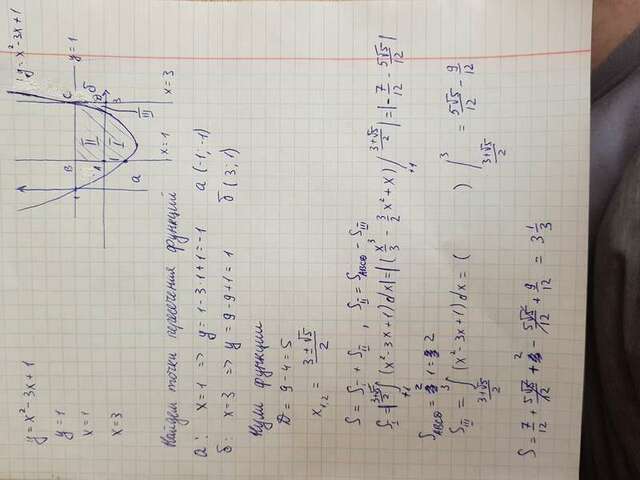 y = x² - 3x + 1
y = 1
x = 1
x = 3
y = x² - 3x + 1
B
C
y = 1
1
II
A
I
D
б
3
а
III
x = 1
x = 3
Найдем точки пересечения функций
а: x = 1 => y = 1 - 3·1 + 1 = -1 а (-1; -1)
б: x = 3 => y = 9 - 9 + 1 = 1 б (3; 1)
Нули функции
D = 9 - 4 = 5
x₁,₂ = (3 ± √5)/2
S = S_I + S_II , S_II = S_ABCD - S_III
S_I = |∫₊₁^((3+√5)/2) (x² - 3x + 1) dx| = |(x³/3 - 3/2 x² + x) /₊₁^((3+√5)/2)| = |-7/12 - 5√5/12|
S_ABCD = 2 · 1 = 2
S_III = ∫_((3+√5)/2)^3 (x² - 3x + 1) dx = ( ) |_((3+√5)/2)^3 = 5√5/12 - 9/12
S = 7/12 + 5√5/12 + 2 - 5√5/12 + 9/12 = 3 1/3